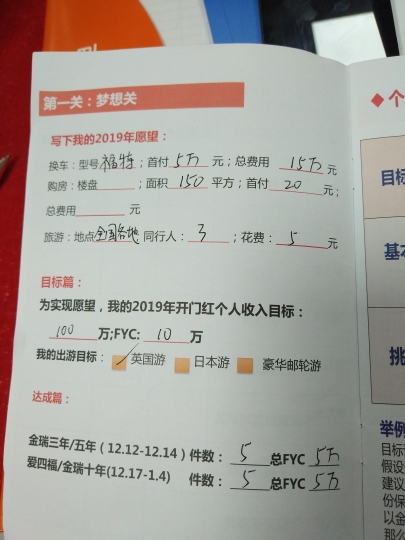 第一关：梦想关
写下我的2019年愿望：
换车：型号福特；首付5万元；总费用15万元
购房：楼盘；面积150平方；首付20元；
总费用元
旅游：地点全国各地同行人：3；花费：5元
目标篇：
为实现愿望，我的2019年开门红个人收入目标：
100万;FYC:10万
我的出游目标：英国游 日本游 豪华邮轮游
达成篇：
金瑞三年/五年（12.12-12.14）件数：5总FYC 5万
爱四福/金瑞十年(12.17-1.4) 件数：5总FYC 5万
◆个
目标
基本
挑
举例
目标
假设
建议
份保
以金
那么